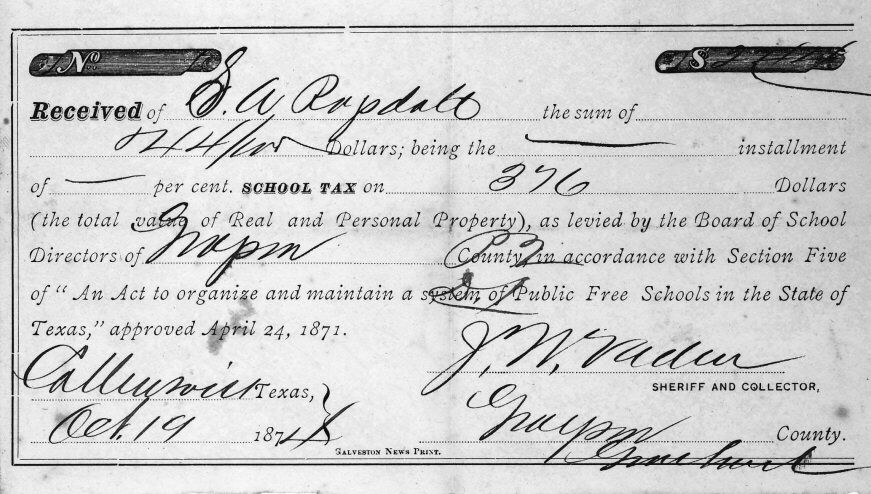 No. $
Received of S. A. Ragsdall the sum of
44/100 Dollars; being the — installment
of — per cent. SCHOOL TAX on 376 Dollars
(the total value of Real and Personal Property), as levied by the Board of School
Directors of Grayson County in accordance with Section Five
of "An Act to organize and maintain a system of Public Free Schools in the State of
Texas," approved April 24, 1871.
J. W. Vaden
SHERIFF AND COLLECTOR,
Texas,
Oct. 19 187
Grayson County.
GALVESTON NEWS PRINT.